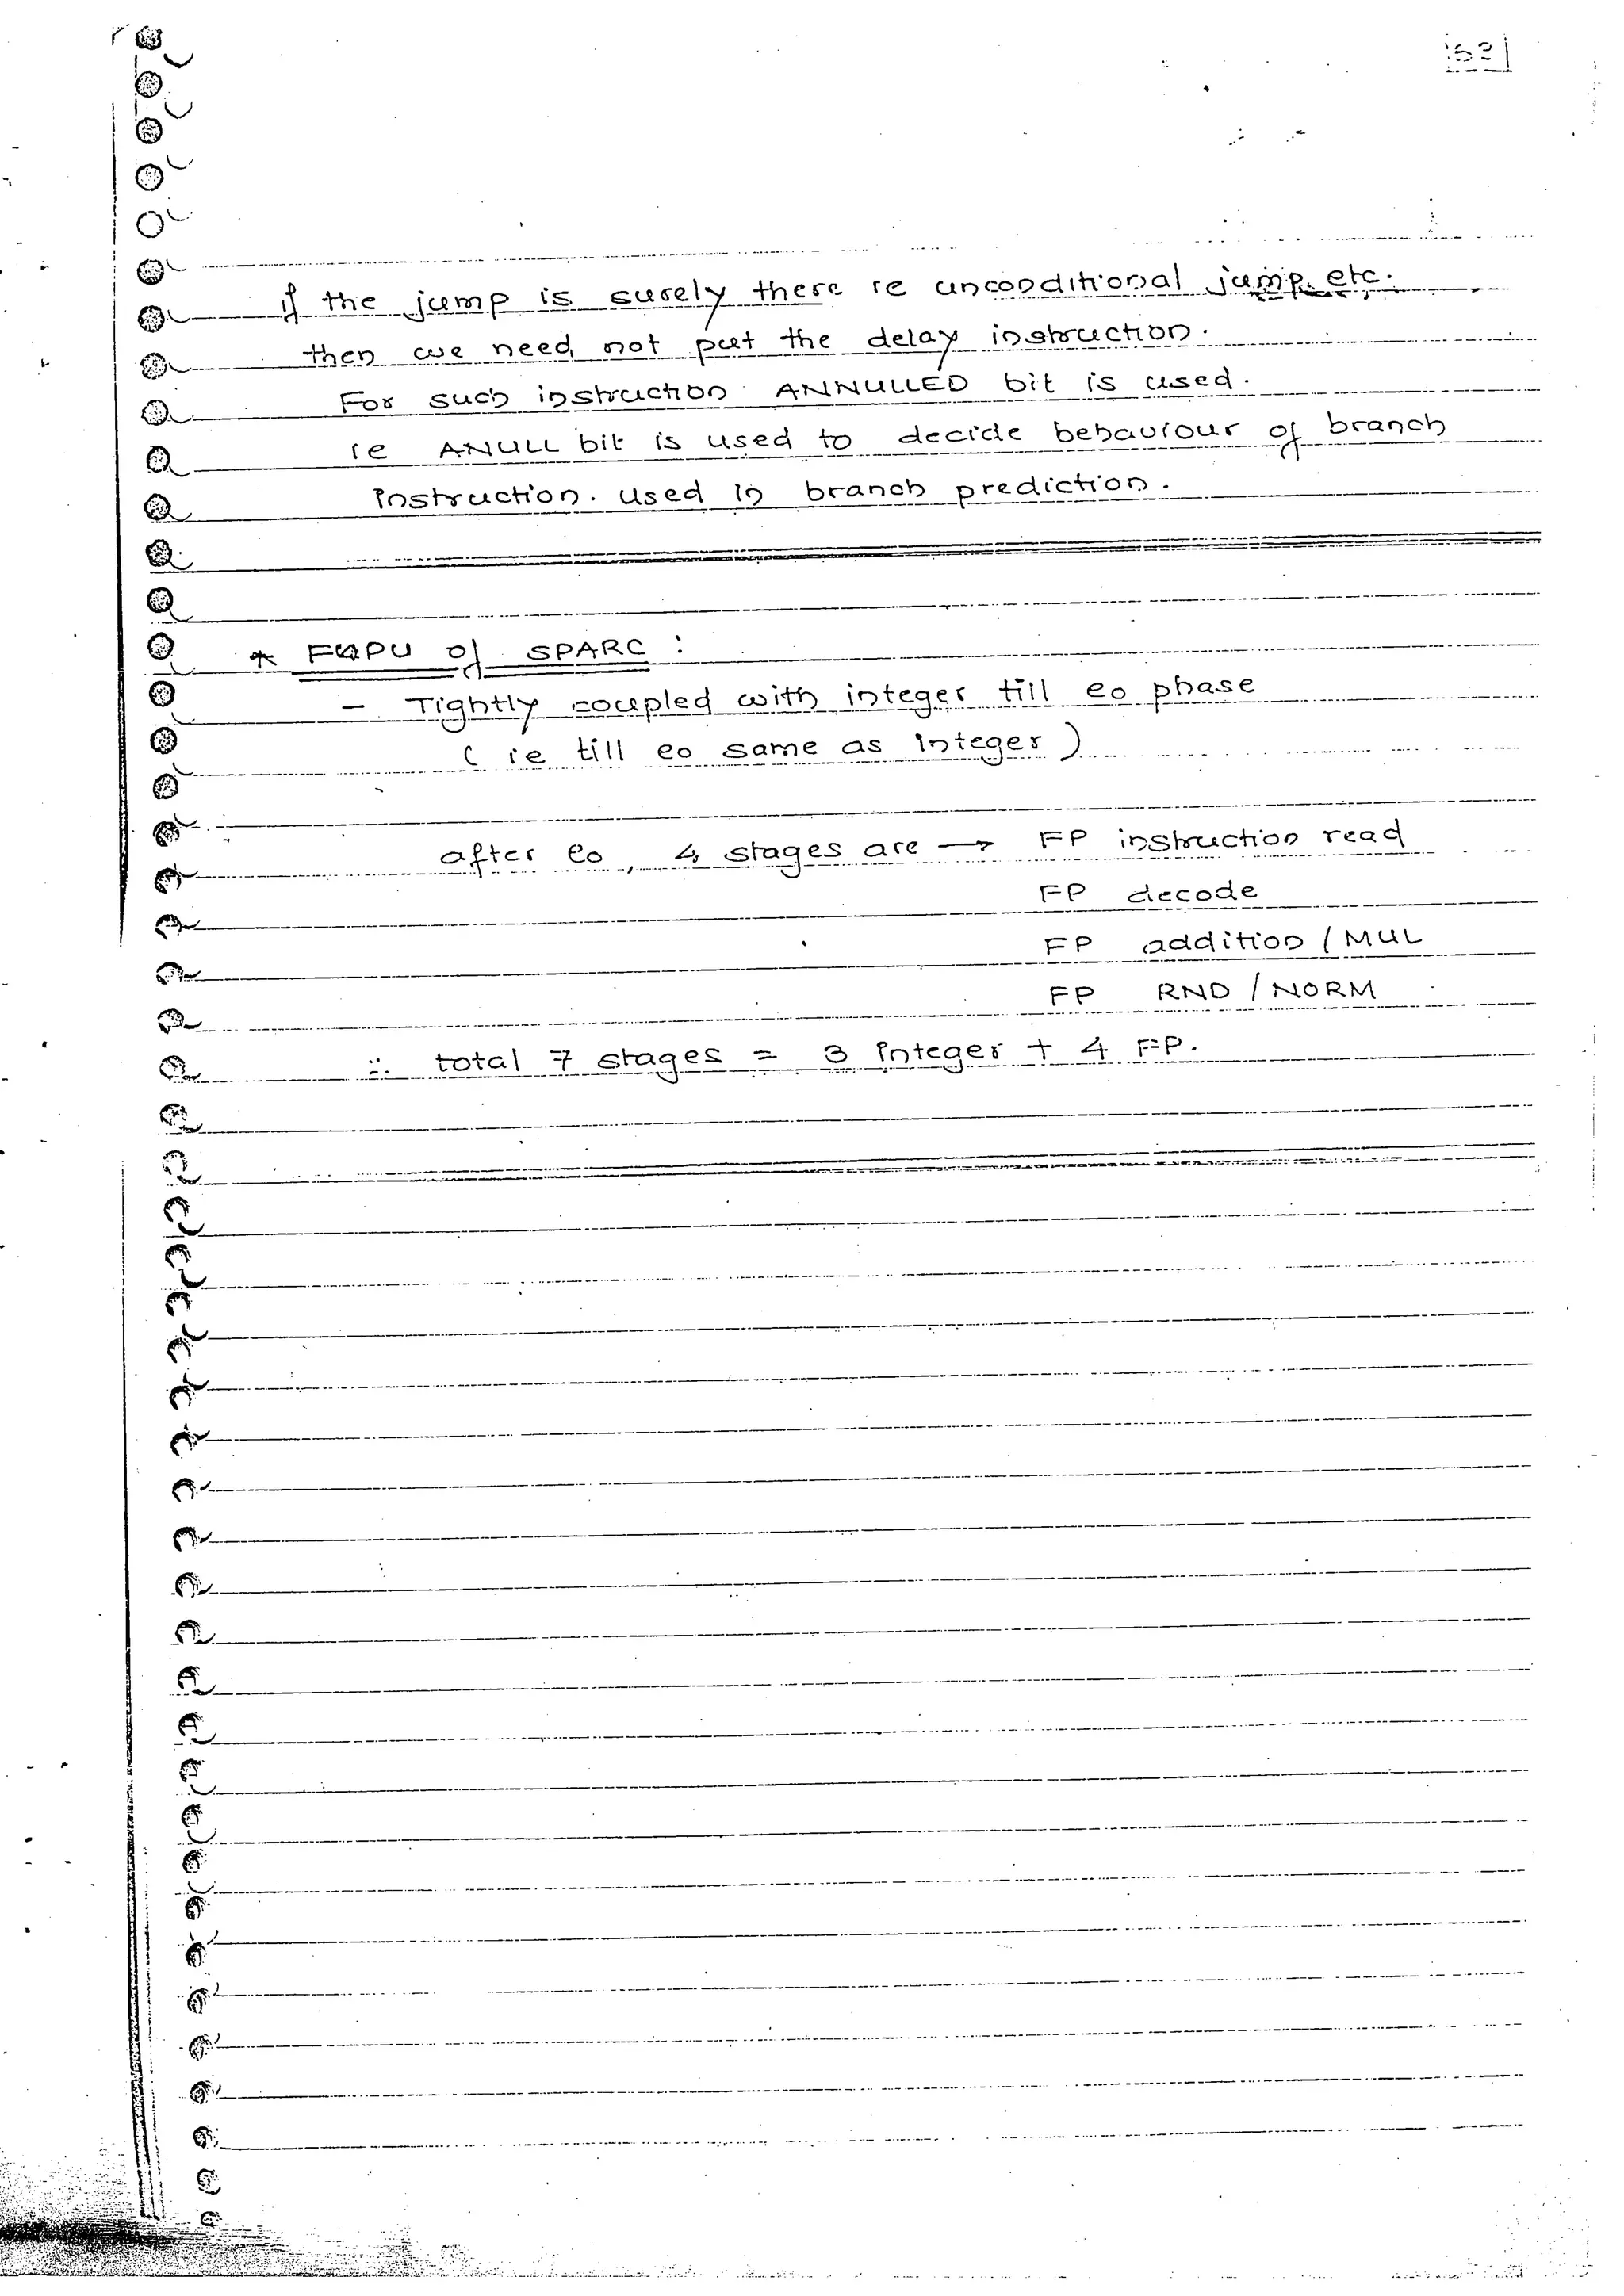 if the jump is surely there ie unconditional jump etc.
then we need not put the delay instruction.
For such instruction ANNULLED bit is used.
ie ANULL bit is used to decide behaviour of branch
instruction. used in branch prediction.
* of SPARC :
- Tightly coupled with integer till eo phase
( ie till eo same as integer )
after eo, 4 stages are → FP instruction read
FP decode
FP addition / MUL
FP RND / NORM
∴ total 7 stages = 3 integer + 4 FP.